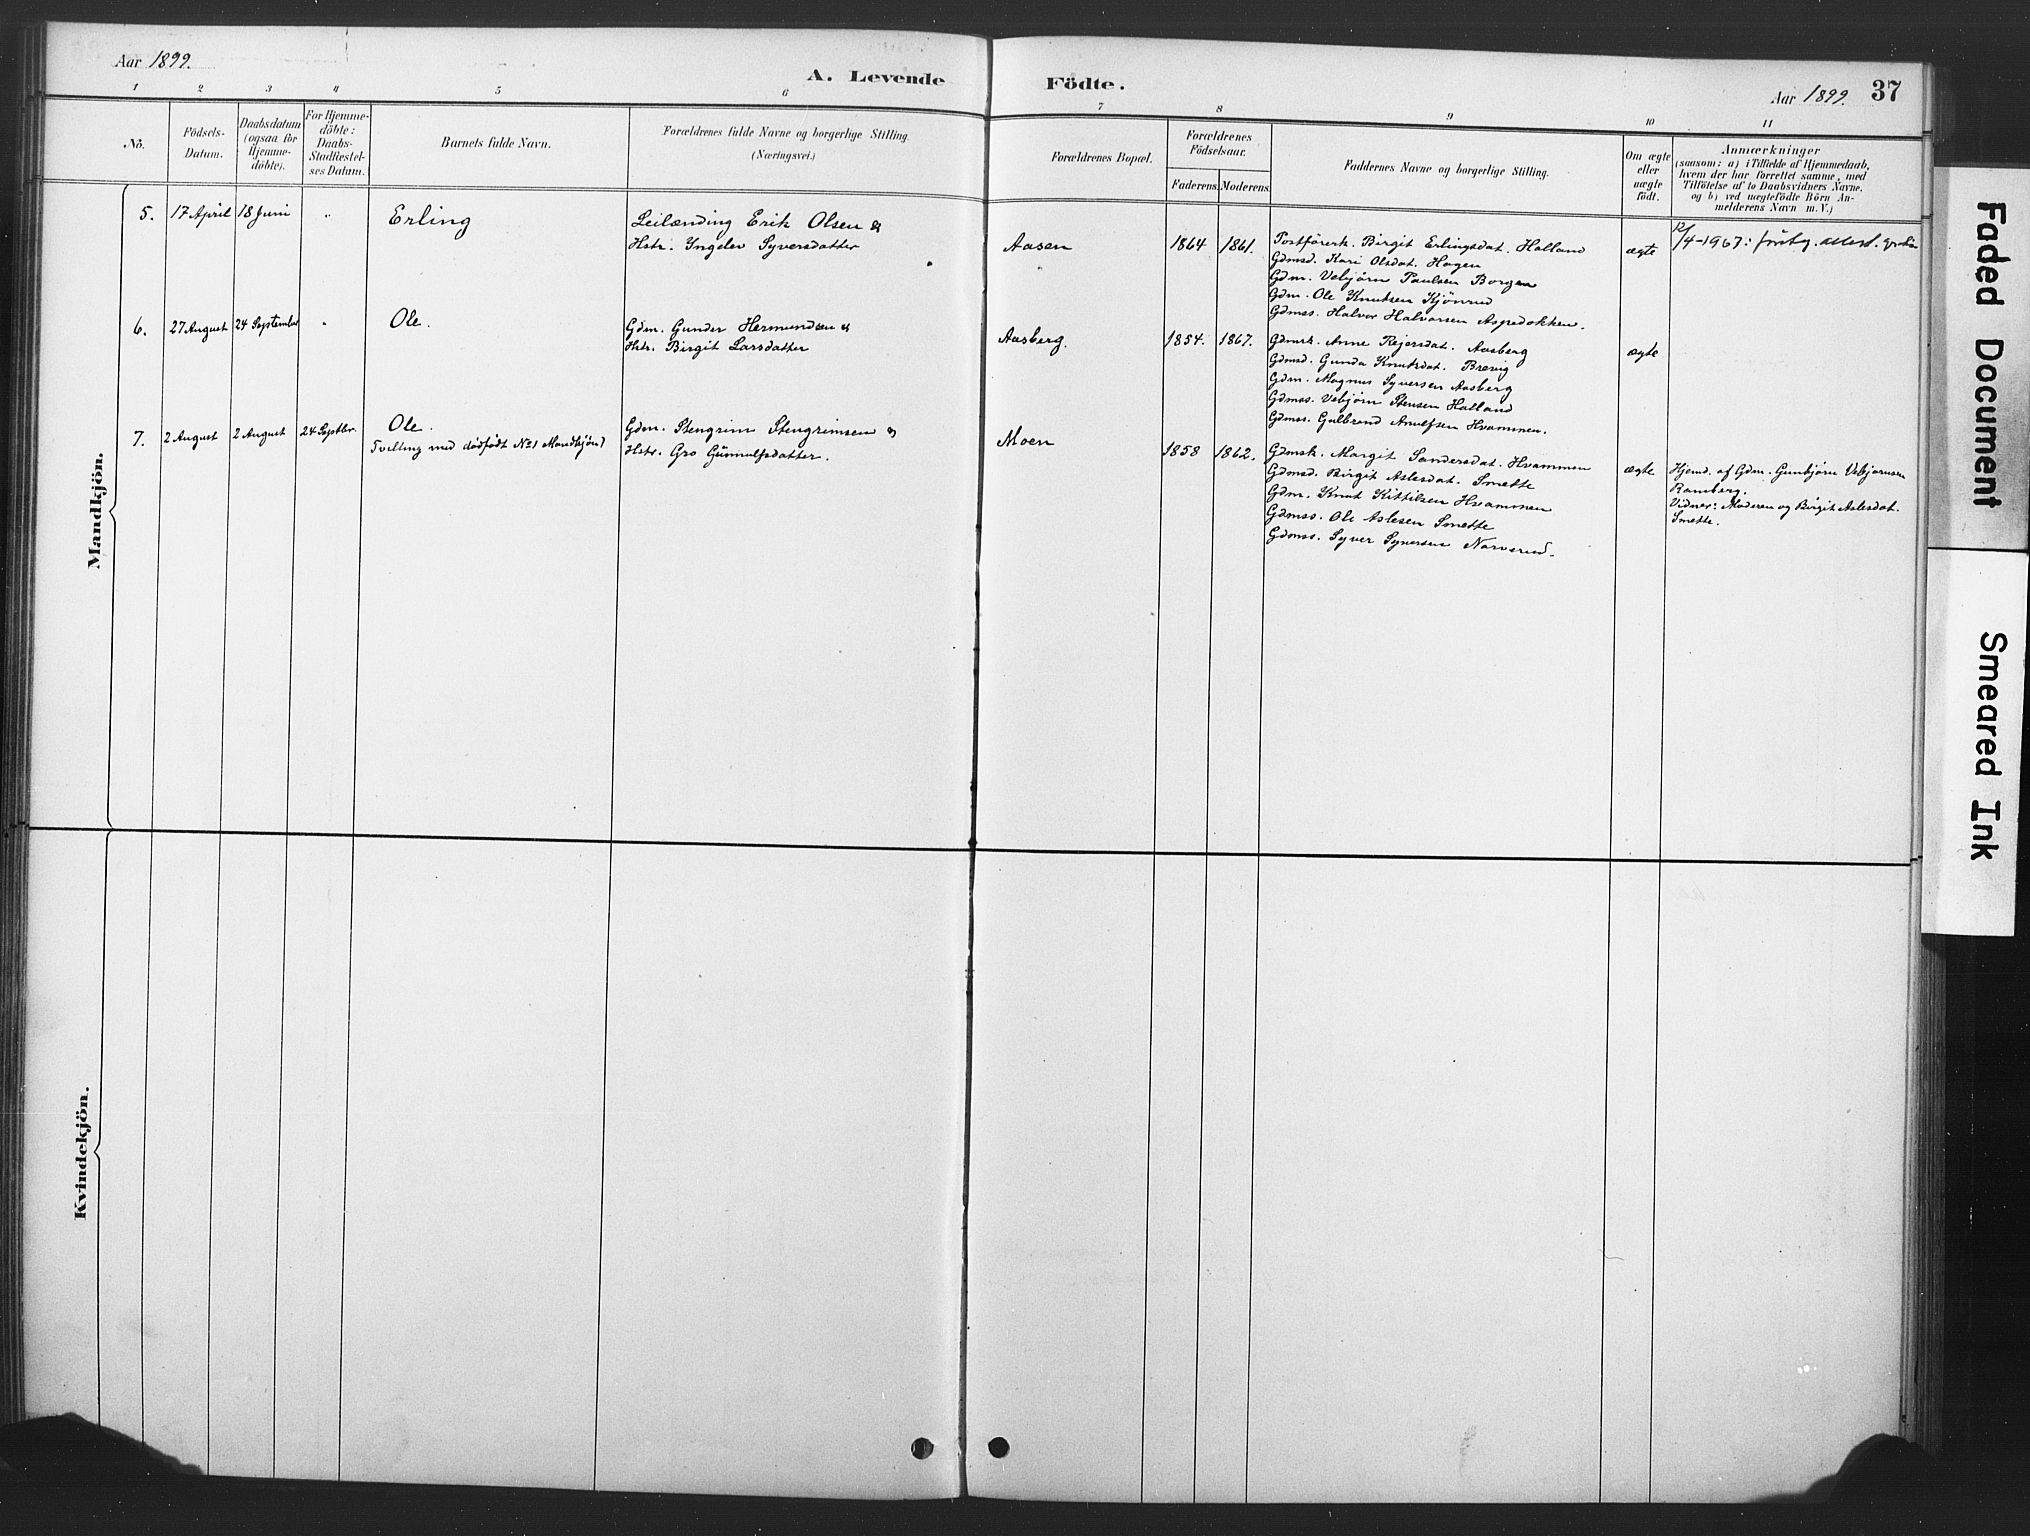 Aar 1899.
A. Levende Födte.
Aar 1899. 37
1 2 3 4 5 6 7 8 9 10 11
No.
Födsels-
Datum.
Daabsdatum
(ogsaa för
Hjemme-
döbte).
For Hjemme-
döbte:
Daabs-
Stadfæstel-
ses Datum.
Barnets fulde Navn.
Forældrenes fulde Navne og borgerlige Stilling
(Næringsvei.)
Forældrenes Bopæl.
Forældrenes
Födselsaar.
Faderens. Moderens.
Faddernes Navne og borgerlige Stilling.
Om ægte
eller
uægte
födt.
Anmærkninger
(saasom: a) i Tilfælde af Hjemmedaab,
hvem der har forrettet samme, med
Tilföielse af to Daabsvidners Navne.
og b) ved uægtefödte Börn An-
melderens Navn m. V.)
Mandkjön.
5. 17 April 18 Juni " Erling
Leilænding Erik Olsen &
Hstr. Ingelev Syversdatter
Aasen 1864 1861.
Birgit Erlingsdat. Halland
Gdmsd. Kari Olsdat. Hagen
Gdm. Vebjørn Paulsen Borgen
Gdm. Ole Knutsen Kjönrud
Gdmss. Halvor Halvorsen Aspedokken.
ægte
/4-1967:
6. 27 August 24 September " Ole.
Gdm. Gunder Hermundsen &
Hstr. Birgit Larsdatter
Aasberg. 1854. 1867.
Gdmsk. Anne Rejersdat. Aasberg
Gdmsd. Gunda Knutsdat. Brevig
Gdm. Magnus Syversen Aasberg
Gdmss. Vebjørn Stensen Halland
Gdmss. Gulbrand Hvammen.
ægte
7. 2 August 2 August 24 Septbr. Ole.
Tvilling med dødfødt No 1 Mandkjøn)
Gdm. Stengrim Stengrimsen &
Hstr. Gro Gunnulfsdatter.
Moen 1858 1862.
Gdmsk. Margit Sandersdat. Hvammen
Gdmsd. Birgit Aslesdat. Smette
Gdm. Knut Kittilsen Hvammen
Gdmss. Ole Aslesen Smette
Gdmss. Syver Syversen Narverud.
ægte
Hjemd. af Gdm. Gunbjørn Vebjørnsen
Ramberg.
Vidner: Moderen og Birgit Aslesdat.
Smette.
Kvindekjön.
Faded Document
Smeared Ink